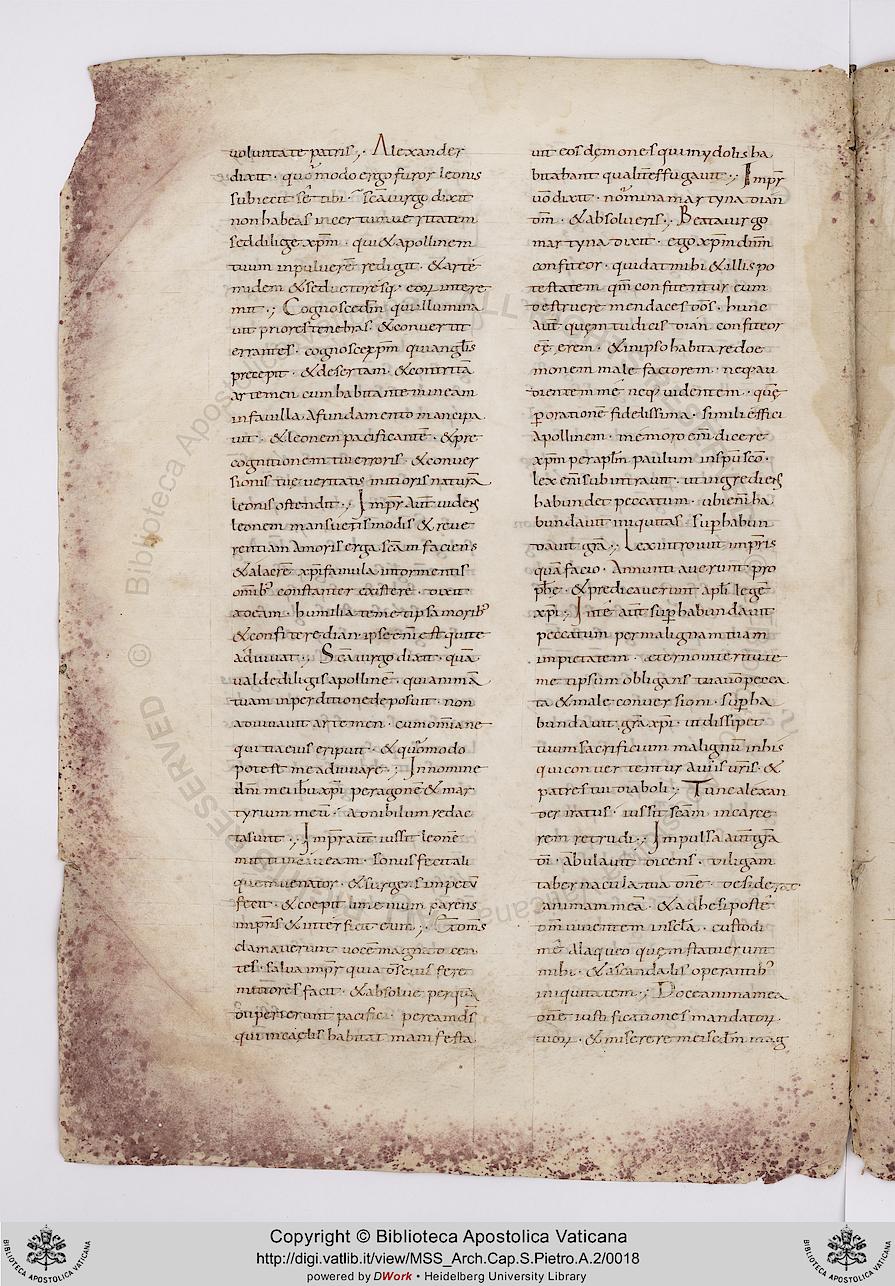 uoluntate patris ;· Alexander
dixit · quomodo ergo furor leonis
subiecit se tibi · Sca uirgo dixit
non habeas incertum ueritatem
sed dilige xpm · qui & apollinem
tuum in puluere redigit · & arte
midem & seductores q; eorum intere
mit ;· Cognosce dm qui illumina
uit priores tenebras & conuertit
errantes · cognosce xpm qui anglis
precepit · & desertam · & contrita
artemen cum habitante in eam
in fauilla a fundamento mancipa
uit · & leonem pacificante · & pre
cognitionem tui erroris · & conuer
sionis tue ueritatis mitioris natura
leonis ostendit ;· Impr aut uidens
leonem mansuetis modis & reue
rentiam amoris erga scam faciens
& alacre xpi famula in tormentis
omib; constanter existere · dixit
ad eam · humilia temetipsa morib;
& confitere dian · ipse eni est qui te
adiuuat ;· Sca uirgo dixit · qua
ualde diligis apolline · qui anima
tuam in perditione deposuit · non
adiuuauit artemen · cum omia ne
quitia eius eripuit · & quomodo
potest me adiuuare ;· In nomine
dni mei ihu xpi peragone & mar
tyrium meu · ad nihilum redac
ta sunt ;· Impr aut iussit leone
mitti in caueam · sonus fecit ali
quem uenator · & surgens impetu
fecit · & coepit limenium parens
impris & interficit eum ;· Et oms
clamauerunt uoce magna dicen
tes · salua impr quia os eius fere
mitiores facit · & absolue per qua
oui peierunt pacific · pereamds
qui in caelis habitat manifesta
uit eos demones qui in ydolis ha
bitabant qualit effugauit ;· Impr
uo dixit · nomina martyna dian
dm · & absolueris ;· Beata uirgo
martyna dixit · ego xpm dnm
confiteor · qui dat mihi & illis po
testatem qm confitentur eum
destruere mendaces dos · hunc
aut quem tu dicis dian confiteor
ee erem · & in ipso habitare doe
monem male factorem · neq; au
dientem me neq; uidentem · que
p oratione fidelissima · simili effici
apollinem · memoro eni dicere
xpm per aplm paulum in spu sco ·
lex eni subintrauit · ut ingrediens
habundet peccatum · ubi eni ha
bundauit iniquitas · suphabun
dauit gra ;· Lex introiuit impris
qua facio · annuntiauerunt pro
phe · & predicauerunt apli lege
xpi ;· In te aut suphabundauit
peccatum per malignam tuam
impietatem · aeterno interitui te
met ipsum obligans tua uo pecca
ta & male conuersioni · supha
bundauit gra xpi · ut dissipet
tuum sacrificium malignu in his
qui conuertentur a uiis uris · &
patres tui diaboli ;· Tunc alexan
der iratus · iussit scam in carce
rem retrudi ;· Impulsa aut gra
di · abulauit dicens · diligam
tabernacula tua dne · desiderat
animam mea · & adhesi post te
dm uiuentem in scla · custodi
me a laqueo quem statuerunt
mihi · & a scandalis operantib;
iniquitatem ;· Doce anima mea
dne iustificationes mandator
tuor · & miserere mei sedm mag
Copyright © Biblioteca Apostolica Vaticana
http://digi.vatlib.it/view/MSS_Arch.Cap.S.Pietro.A.2/0018
powered by DWork • Heidelberg University Library
BIBLIOTECA APOSTOLICA VATICANA
BIBLIOTECA APOSTOLICA VATICANA